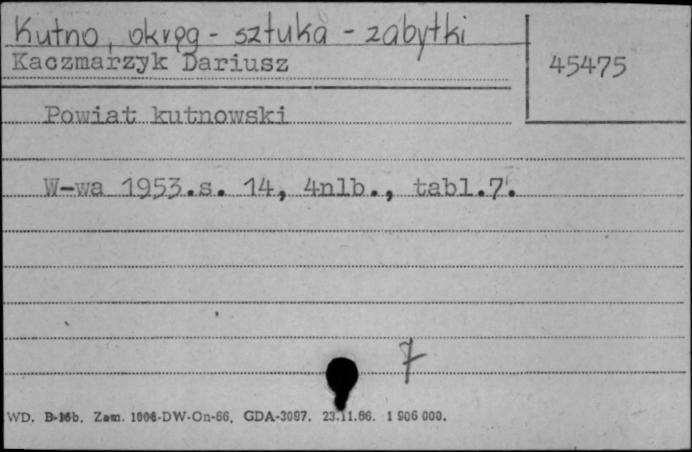 Kutno, okręg - sztuka - zabytki
Kaczmarzyk Dariusz
45475
Powiat kutnowski
W-wa 1953.s. 14, 4nlb., tabl.7.
7
WD. B-16b. Zam. 1008-DW-On-66. GDA-3097. 23.11.66. 1 906 000.